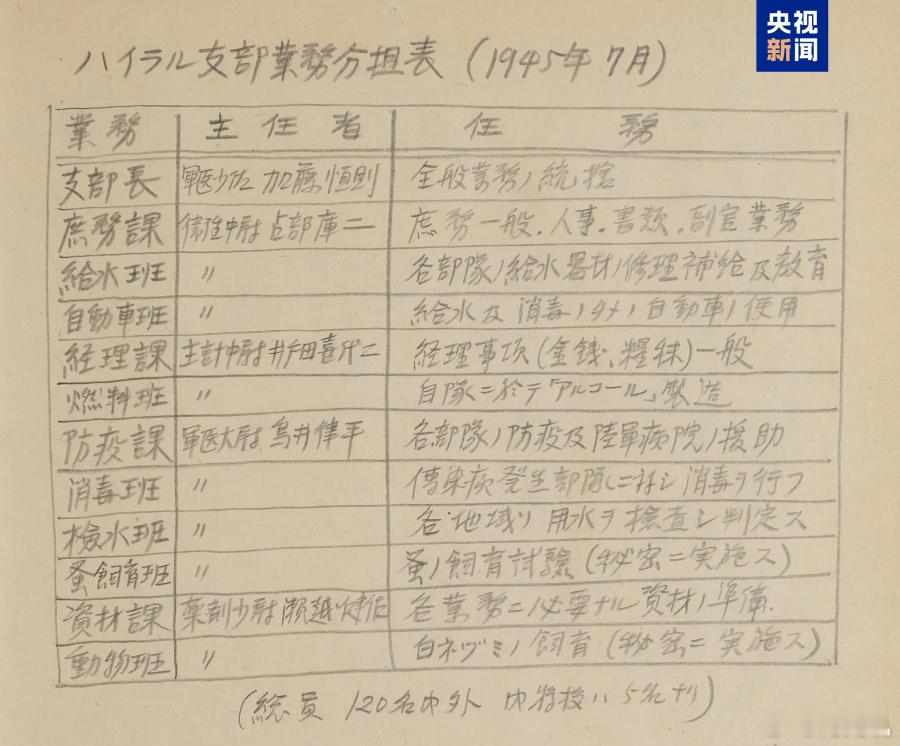 央视
新闻
ハイラル支部業務分担表 (1945年 7月)
業務 主任者 任務
支部長 軍医少佐 加藤恒則 全般業務ノ統括
庶務課 衛生中尉 占部庫二 庶務一般.人事.書類.副官業務
給水班 〃 各部隊ノ給水器材ノ修理補給及教育
自動車班 〃 給水及消毒ノタメノ自動車ノ使用
経理課 主計中尉 井田喜代二 経理事項(金銭、糧秣)一般
燃料班 〃 自隊ニ於テ「アルコール」製造
防疫課 軍医大尉 鳥井律平 各部隊ノ防疫及陸軍病院ノ援助
消毒班 〃 傳染病発生部隊ニ対シ消毒ヲ行フ
檢水班 〃 各地域ノ用水ヲ検査シ判定ス
蚤飼育班 〃 蚤ノ飼育試驗(秘密ニ実施ス)
資材課 薬剤少尉 瀬越健 各業務ニ必要ナル資材ノ準備.
動物班 〃 白ネヅミノ飼育(秘密ニ実施ス)
(総員 120名内外 内将校ハ5名ナリ)